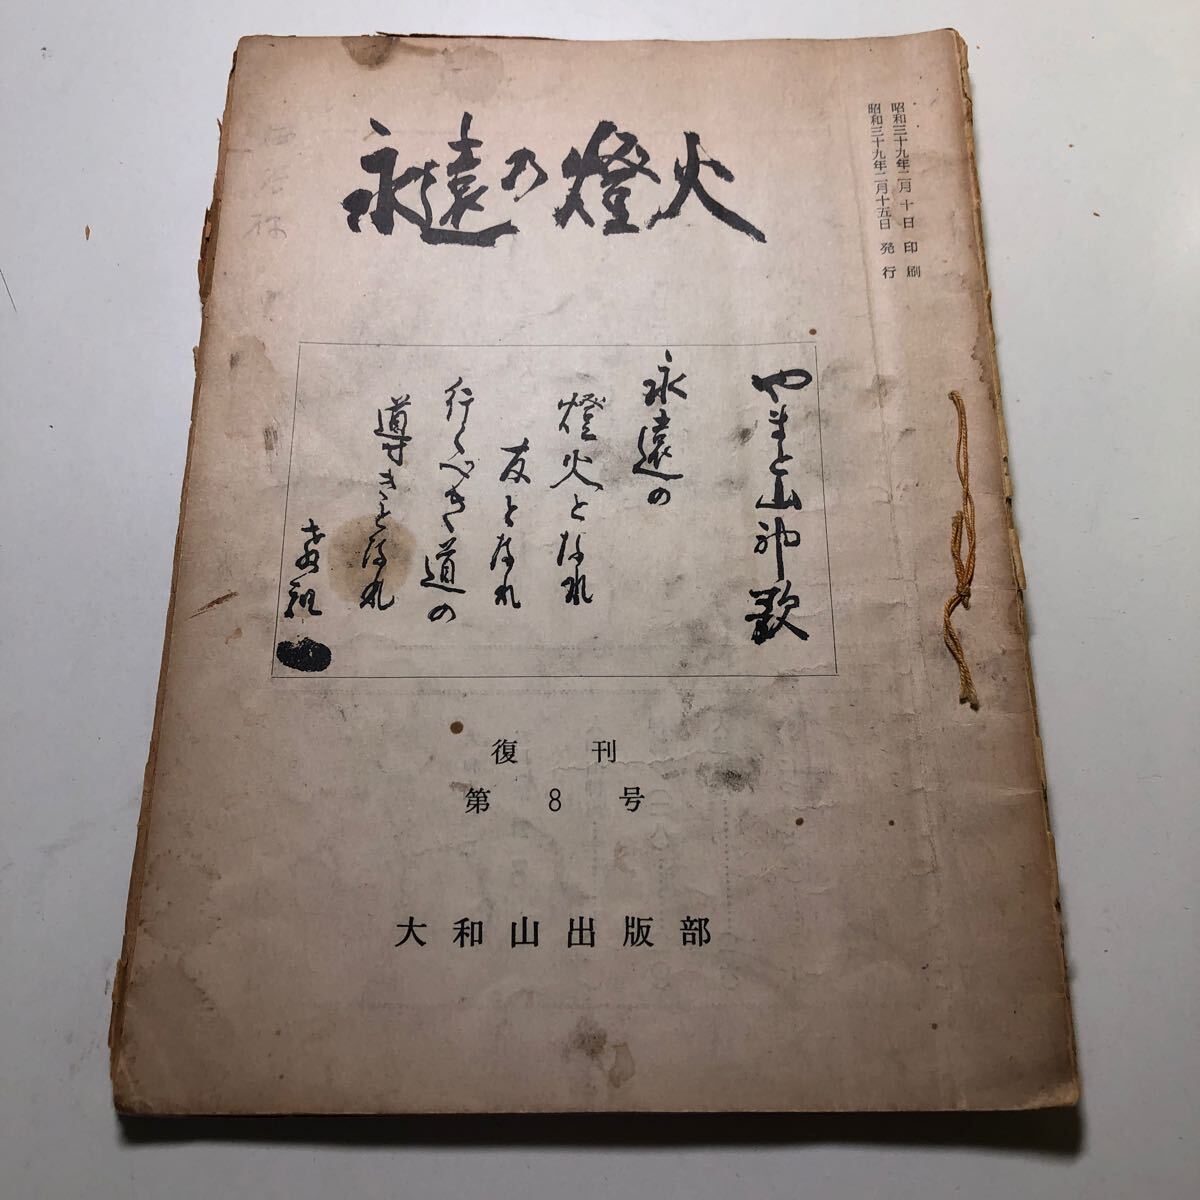 昭和三十九年二月十日 印刷
昭和三十九年二月十五日 発行
永遠の燈火
やまと山神歌
永遠の
燈火となれ
友となれ
行くべき道の
導きとなれ
教祖
復刊
第8号
大和山出版部